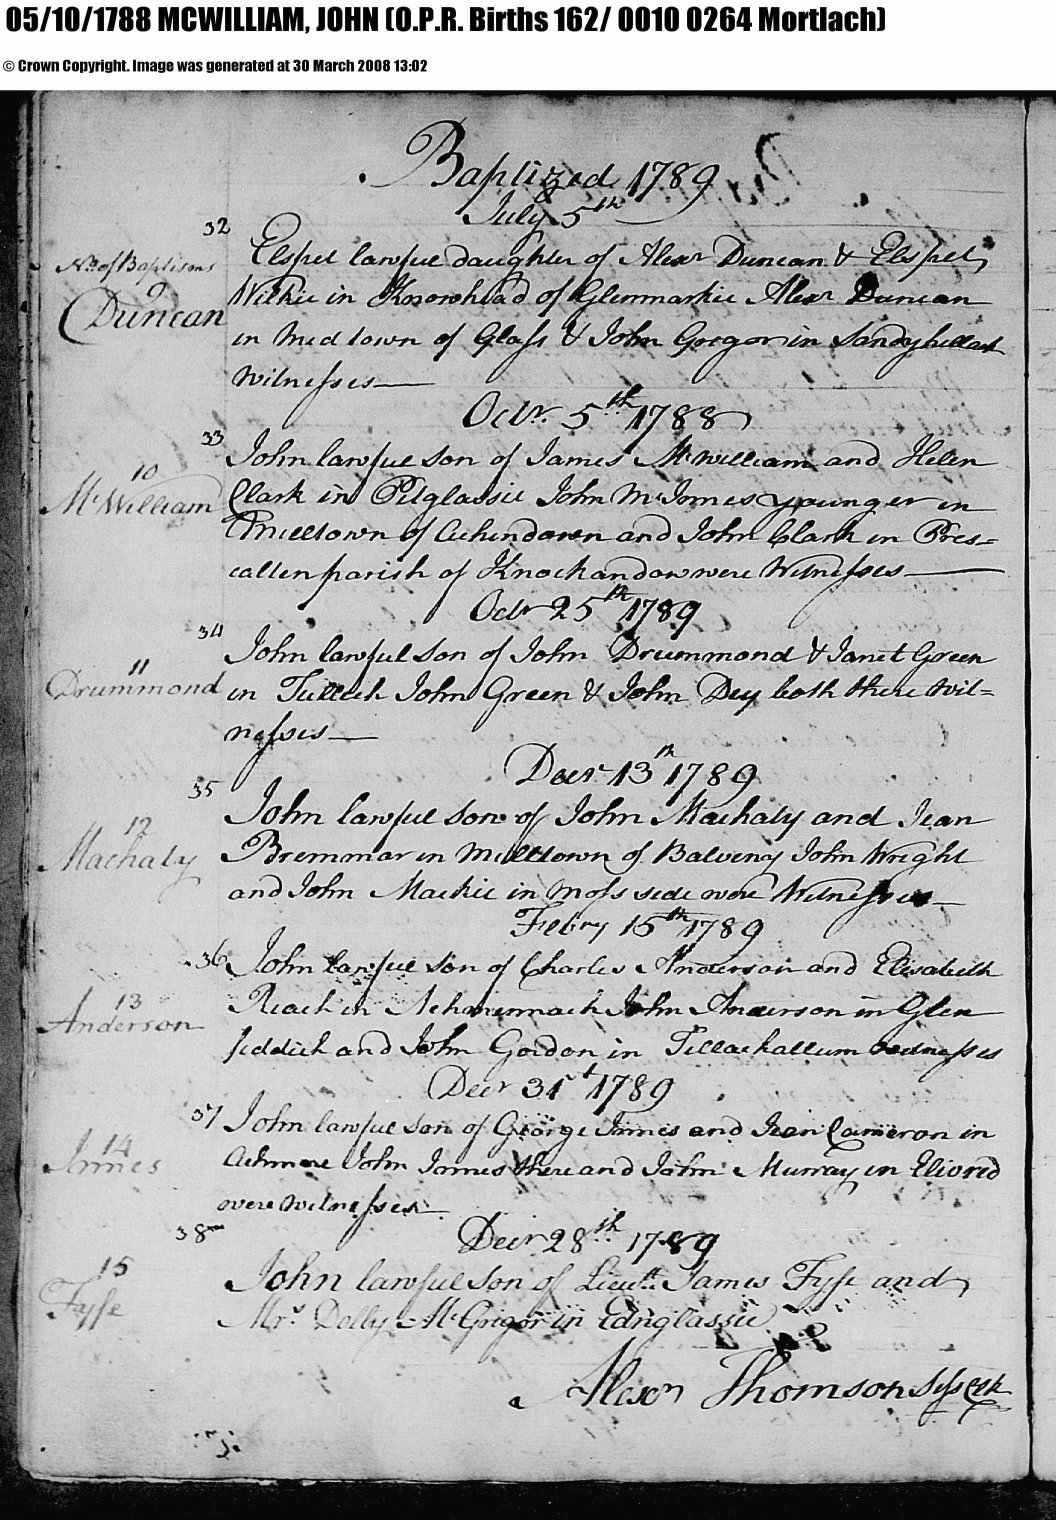 05/10/1788 MCWILLIAM, JOHN (O.P.R. Births 162/ 0010 0264 Mortlach)
© Crown Copyright. Image was generated at 30 March 2008 13:02
Baptized 1789
July 5th
32
No. of Baptisms
9
Duncan
Elspet lawfue daughter of Alexr Duncan & Elspet
Wilkie in of Glenmarkie Alexr Duncan
in Midtown of Glass & John Gregor in Sandyhillock
Witnesses
Octr. 5th 1788
33
10
McWilliam
John lawfue son of James McWilliam and Helen
Clark in Pitglassie John McInnes younger in
Milltown of Auchindown and John Clark in Pres=
callen parish of Knockandow were Witnesses
Octr 25th 1789
34
11
Drummond
John lawful Son of John Drummond & Janet Green
in Tulloch John Green & John Dey both there wit=
nesses
Decr 13th 1789
35
12
Machaty
John lawful son of John Machaty and Jean
Bremmar in Milltown of Balveny John Wright
and John Mackie in Moss side were Witnesses
Febry 15th 1789
36
13
Anderson
John lawfue son of Charles Anderson and Elisabeth
Reach in John Anderson in Glen
fiddich and John Gordon in Tillachallum witnesses
Decr 31st 1789
37
14
Innes
John lawfue son of George Innes and Jean Cameron in
Achmore John Innes there and John Murray in
were witnesses
Decr 28th 1789
38
15
Fyfe
John lawfue Son of Lieutt. James Fyfe and
Mrs. Dolly McGrigor in Edinglassie
Alexr Thomson Sess Clk